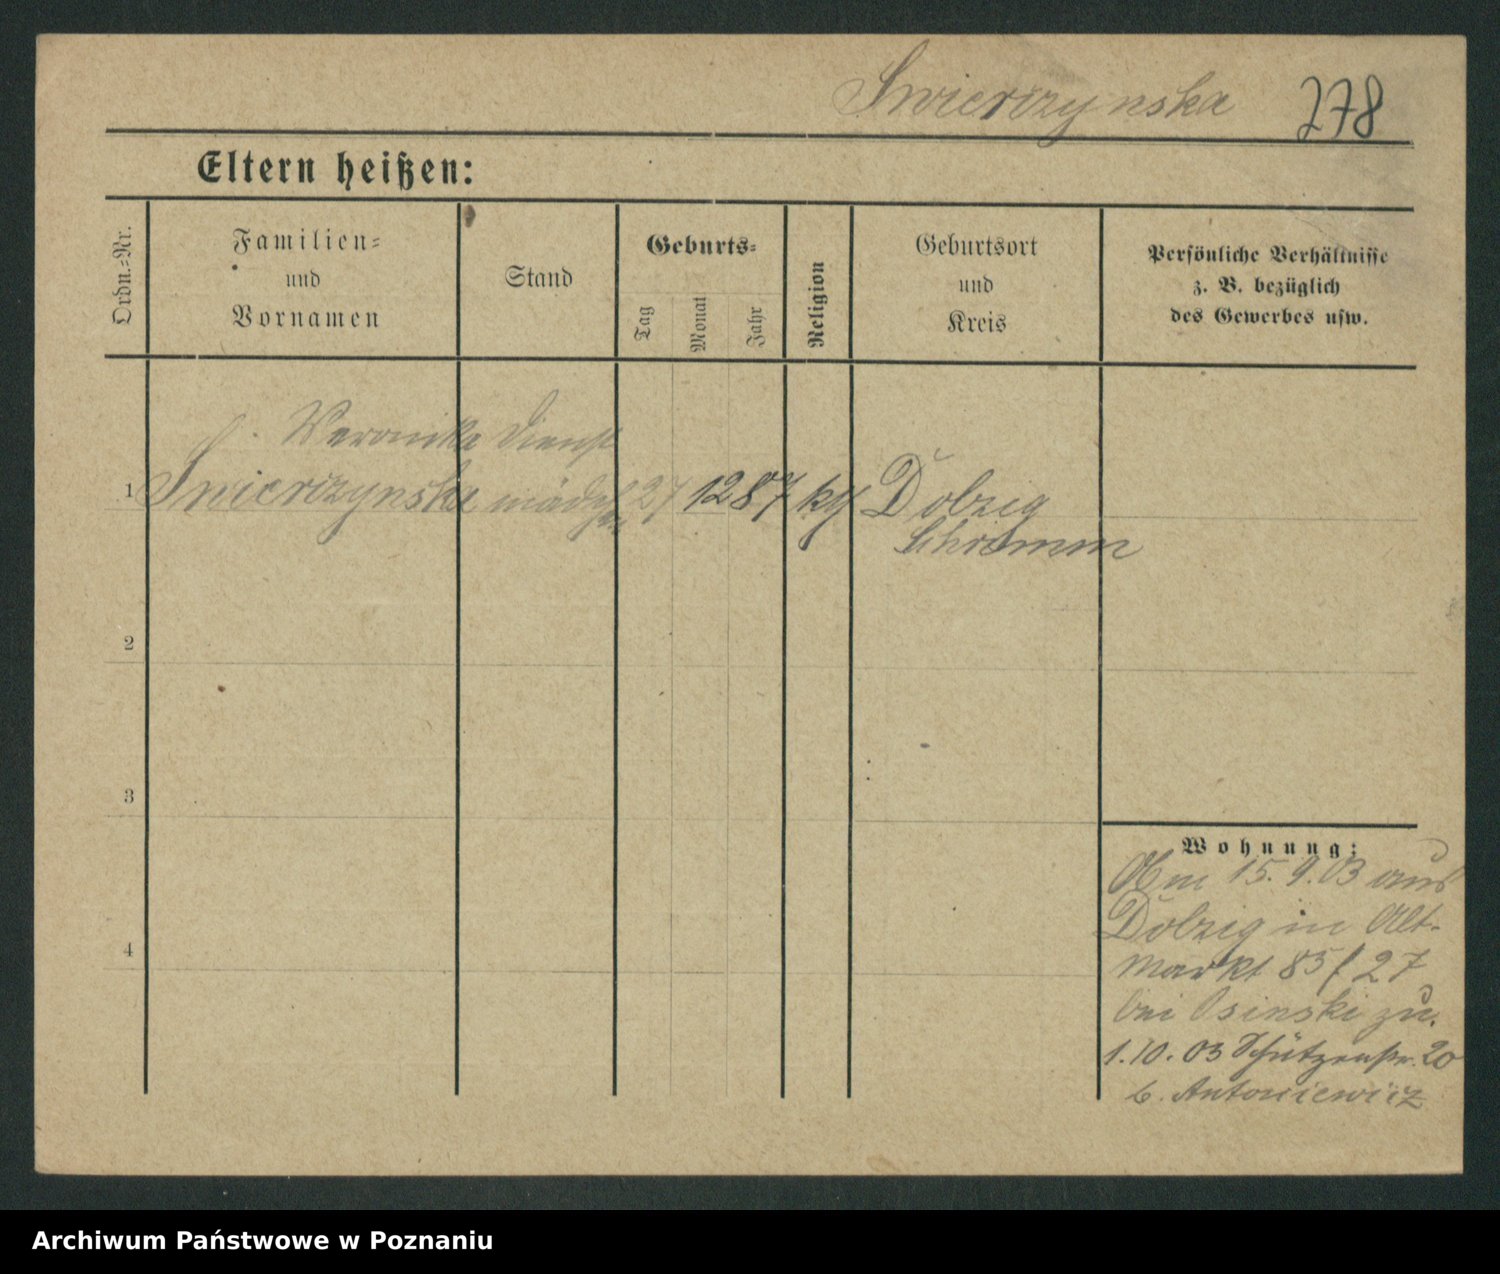 Swierczynska 278
Eltern heißen:
Ordn.-Nr.
Familien-
und
Vornamen
Stand
Geburts-
Tag
Monat
Jahr
Religion
Geburtsort
und
Kreis
Persönliche Verhältnisse
z. B. bezüglich
des Gewerbes usw.
Veronika Dienst
1 Swierczynska mädchen 27 12 87 kth Dolzig
Schrimm
2
3
4
Wohnung:
Am 15.9.03 aus
Dolzig in Alt-
markt 85/27
bei Osinski zu.
1.10.03 Schützenstr. 20
b. Antoniewicz
Archiwum Państwowe w Poznaniu